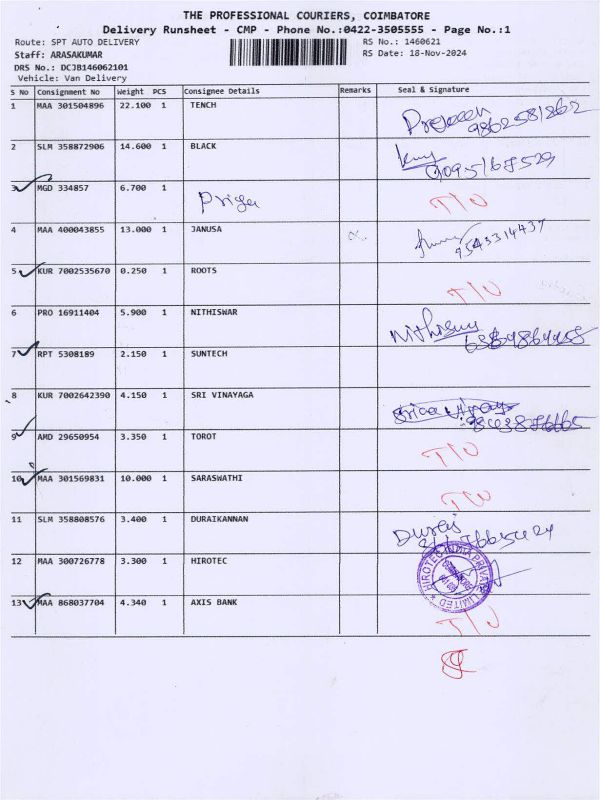 THE PROFESSIONAL COURIERS, COIMBATORE
Delivery Runsheet - CMP - Phone No.:0422-3505555 - Page No.:1
Route: SPT AUTO DELIVERY RS No.: 1460621
Staff: ARASAKUMAR RS Date: 18-Nov-2024
DRS No.: DCJB146062101
Vehicle: Van Delivery
S No Consignment No Weight PCS Consignee Details Remarks Seal & Signature
1 MAA 301504896 22.100 1 TENCH
9862581262
2 SLM 358872906 14.600 1 BLACK
3 MGD 334857 6.700 1 Priya T/U
4 MAA 400043855 13.000 1 JANUSA
9543314437
5 KUR 7002535670 0.250 1 ROOTS T/U
6 PRO 16911404 5.900 1 NITHISWAR
7 RPT 5308189 2.150 1 SUNTECH
8 KUR 7002642390 4.150 1 SRI VINAYAGA
9 AMD 29650954 3.350 1 TOROT T/U
10 MAA 301569831 10.000 1 SARASWATHI T/U
11 SLM 358808576 3.400 1 DURAIKANNAN Durai
12 MAA 300726778 3.300 1 HIROTEC HIROTEC INDIA PRIVATE LIMITED
13 MAA 868037704 4.340 1 AXIS BANK T/U